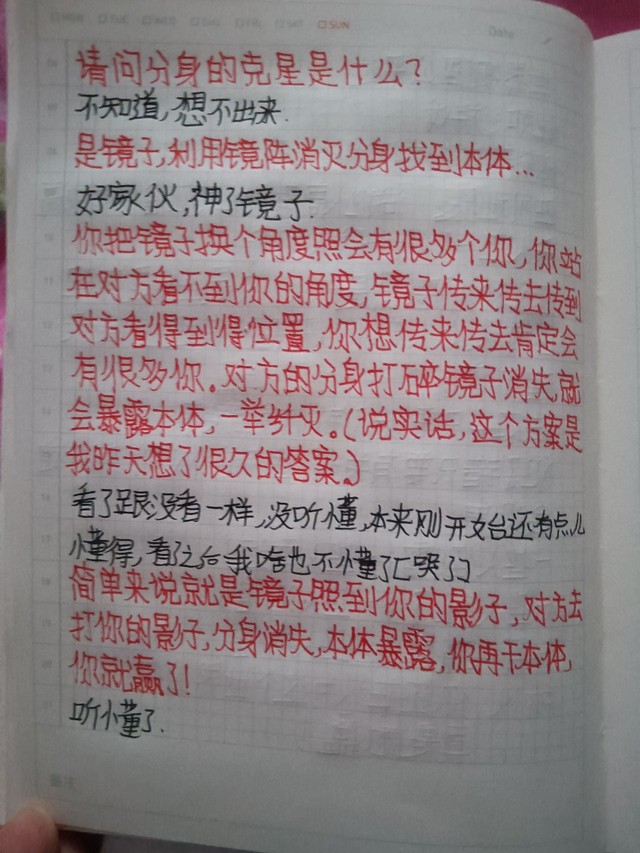 SUN
Date
请问分身的克星是什么?
不知道,想不出来.
是镜子,利用镜阵消灭分身找到本体...
好家伙,神了镜子.
你把镜子换个角度照会有很多个你,你站
在对方看不到你的角度,镜子传来传去传到
对方看得到得位置,你想传来传去肯定会
有很多你。对方的分身打碎镜子消失,就
会暴露本体,一举歼灭。(说实话,这个方案是
我昨天想了很久的答案。)
看了跟没看一样,没听懂,本来刚开始还有点儿
懂得,看了之后我啥也不懂了[哭了]
简单来说就是镜子照到你的影子,对方去
打你的影子,分身消失,本体暴露,你再干本体,
你就赢了!
听懂了.